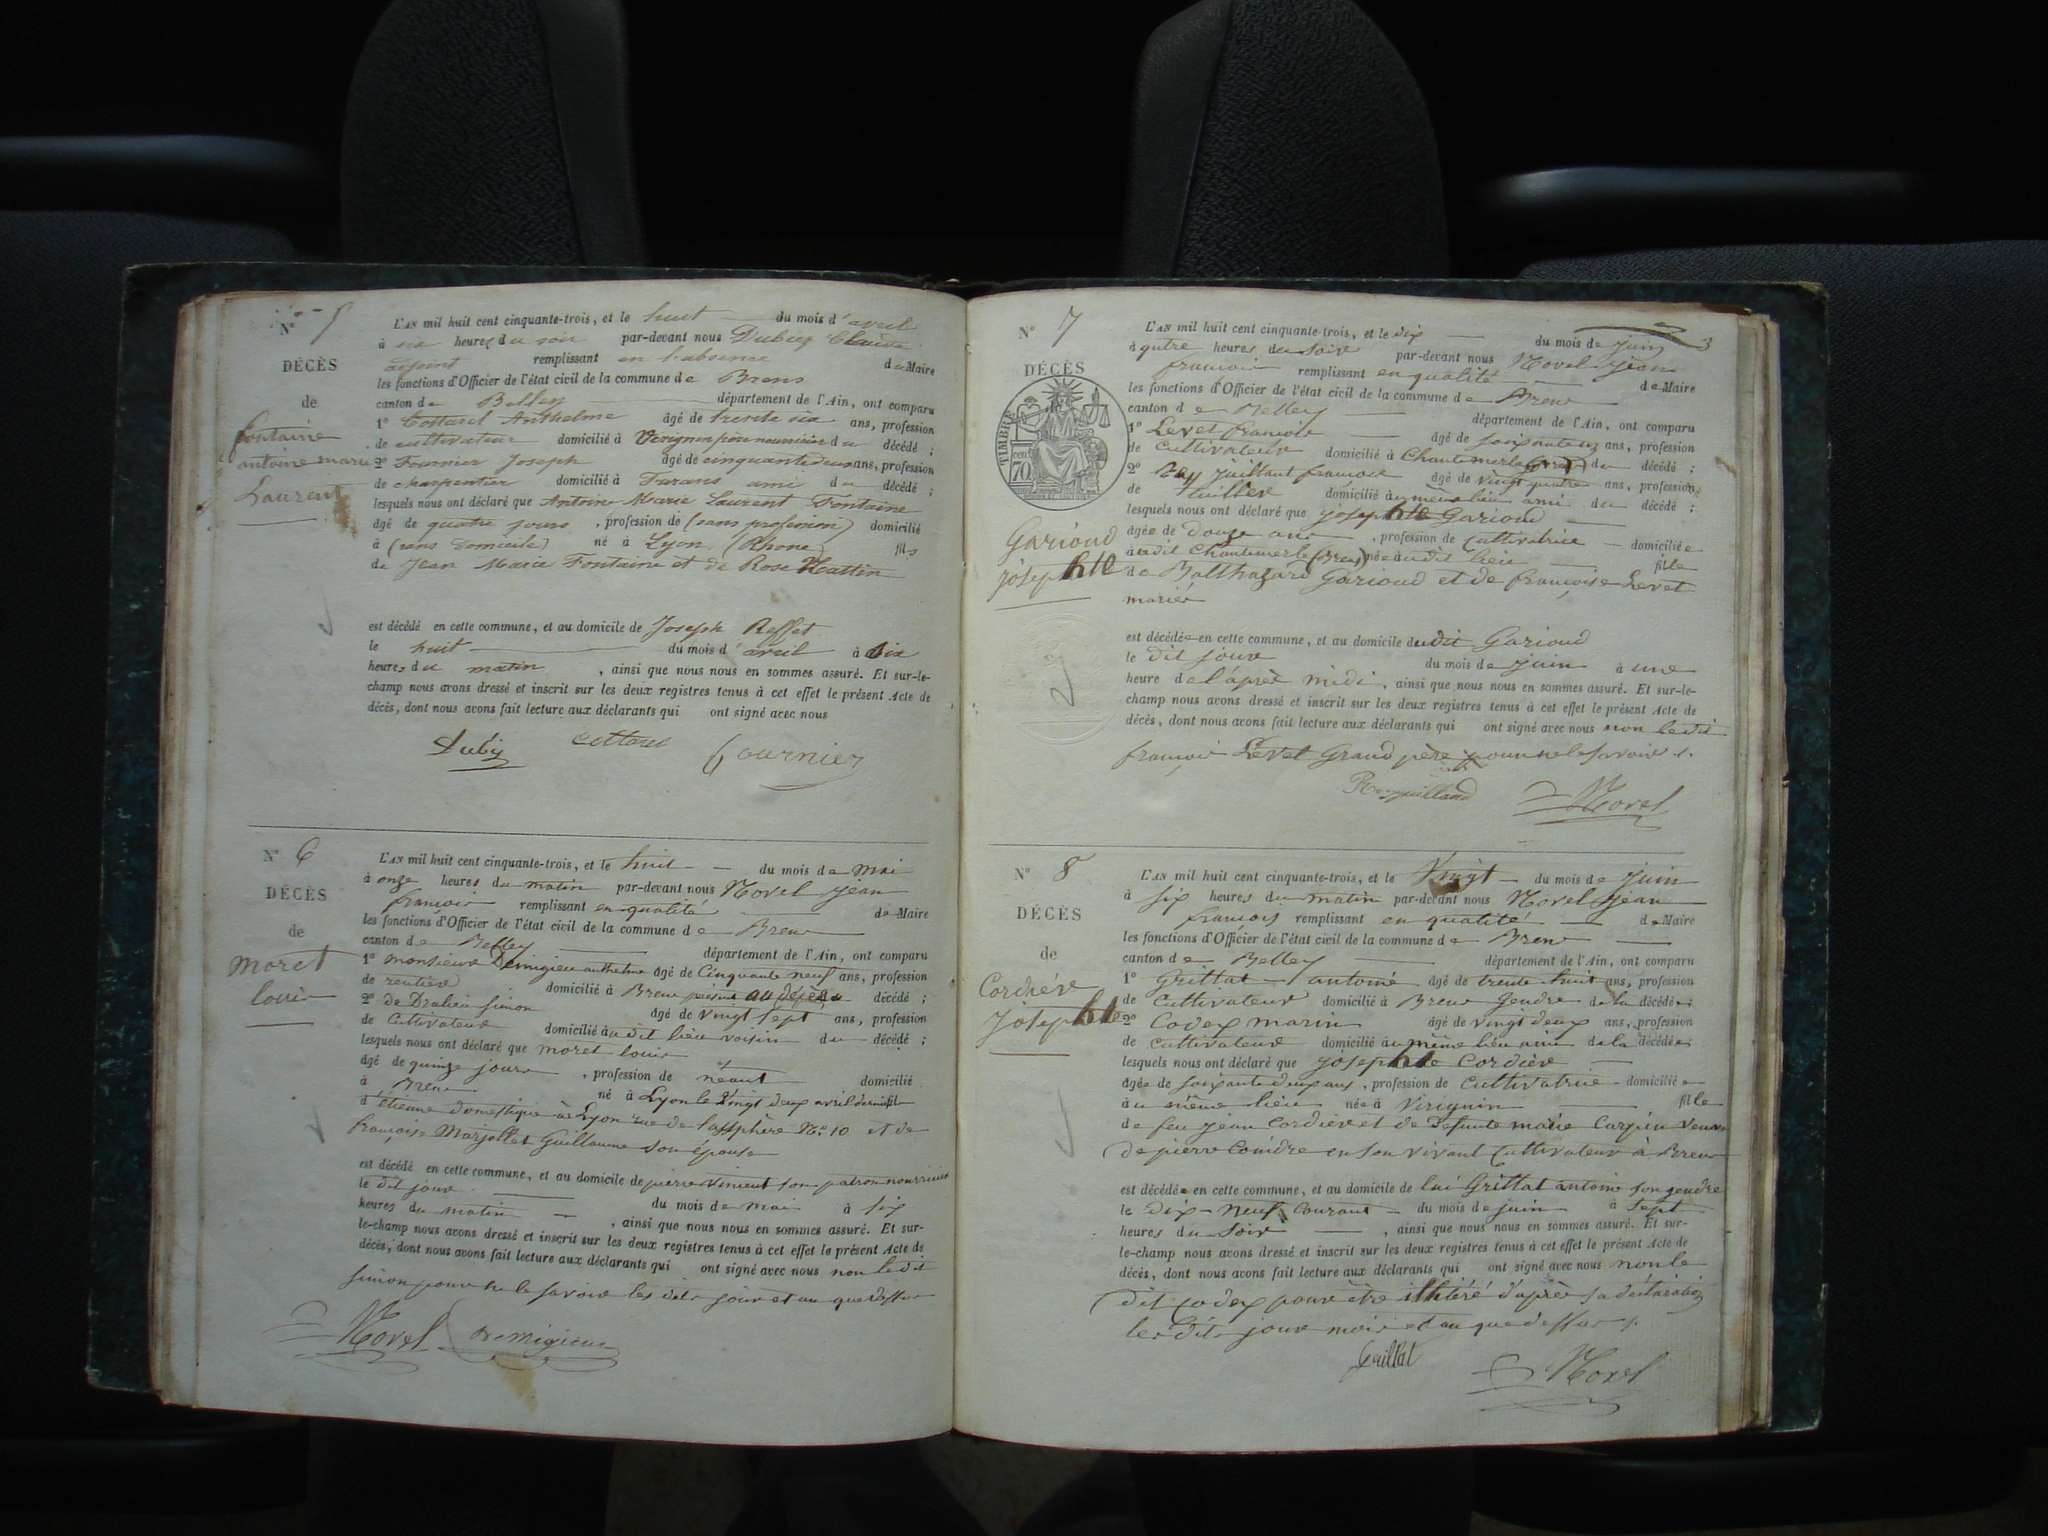 N° 5
DÉCÈS
de
fontaine
antoine marie
Laurent
L'AN mil huit cent cinquante-trois, et le huit du mois d'avril
à six heures du soir par-devant nous Dubiez Claude
adjoint remplissant en l'absence du Maire
les fonctions d'Officier de l'état civil de la commune de Brens
canton de Belley département de l'Ain, ont comparu
1° Cottarel Anthelme âgé de trente six ans, profession
de cultivateur domicilié à père nourricier du décédé ;
2° Fournier Joseph âgé de cinquante deux ans, profession
de charpentier domicilié à Farans ami du décédé ;
lesquels nous ont déclaré que Antoine Marie Laurent Fontaine
âgé de quatre jours , profession de (sans profession) domicilié
à (sans domicile) né à Lyon (Rhone) fils
de Jean Marie Fontaine et de Rose Mattin
est décédé en cette commune, et au domicile de Joseph Reffet
le huit du mois d'avril à six
heures du matin , ainsi que nous nous en sommes assuré. Et sur-le-
champ nous avons dressé et inscrit sur les deux registres tenus à cet effet le présent Acte de
décès, dont nous avons fait lecture aux déclarants qui ont signé avec nous
Cottarel Fournier
N° 6
DÉCÈS
de
moret
louis
L'AN mil huit cent cinquante-trois, et le huit du mois de mai
à onze heures du matin par-devant nous Morel jean
françois remplissant en qualité de Maire
les fonctions d'Officier de l'état civil de la commune de Brens
canton de Belley département de l'Ain, ont comparu
1° monsieur Demigieu anthelme âgé de Cinquante neuf ans, profession
de rentier domicilié à Brens présent au décès du décédé ;
2° de Dralia simon âgé de vingt sept ans, profession
de Cultivateur domicilié au dit lieu voisin du décédé ;
lesquels nous ont déclaré que moret louis
âgé de quinze jours , profession de néant domicilié
à Brens né à Lyon le vingt deux avril dernier fils
d étienne domestique à Lyon rue de N° 10 et de
françoise Marjollet Guillaume son épouse
est décédé en cette commune, et au domicile de pierre vincent son patron nourricier
le dit jour du mois de mai à six
heures du matin , ainsi que nous nous en sommes assuré. Et sur-
le-champ nous avons dressé et inscrit sur les deux registres tenus à cet effet le présent Acte de
décès, dont nous avons fait lecture aux déclarants qui ont signé avec nous non le dit
simon pour ne le savoir les dits jour et an que dessus
Morel Demigieu
3
N° 7
DÉCÈS
TIMBRE
70 cent
Garioud
josephte
L'AN mil huit cent cinquante-trois, et le dix du mois de juin
à qutre heures du soir par-devant nous Morel jean
françois remplissant en qualité de Maire
les fonctions d'Officier de l'état civil de la commune de Brens
canton de Belley département de l'Ain, ont comparu
1° Levet françois âgé de ans, profession
de Cultivateur domicilié à Chantemerle du décédé ;
2° françois âgé de vingt quatre ans, profession
de domicilié au même lieu ami du décédé ;
lesquels nous ont déclaré que josephte Garioud
âgée de douze ans , profession de Cultivatrice domiciliée
à udit Chantemerle (Brens) née audit lieu fille
de Balthazard Garioud et de françoise Levet
mariés
est décédée en cette commune, et au domicile dudit Garioud
le dit jour du mois de juin à une
heure de l'après midi , ainsi que nous nous en sommes assuré. Et sur-le-
champ nous avons dressé et inscrit sur les deux registres tenus à cet effet le présent Acte de
décès, dont nous avons fait lecture aux déclarants qui ont signé avec nous non le dit
françois Levet Grand père pour ne le savoir
Morel
N° 8
DÉCÈS
de
Cordiére
josephte
L'AN mil huit cent cinquante-trois, et le Vingt du mois de juin
à six heures du matin par-devant nous Morel jean
françois remplissant en qualité de Maire
les fonctions d'Officier de l'état civil de la commune de Brens
canton de Belley département de l'Ain, ont comparu
1° Grittat antoine âgé de trente huit ans, profession
de Cultivateur domicilié à Brens Gendre de la décédée ;
2° Codex marin âgé de vingt deux ans, profession
de Cultivateur domicilié au même lieu ami de la décédée ;
lesquels nous ont déclaré que josephte Cordière
âgée de soixante deux ans , profession de cultivatrice domiciliée
au même lieu née à Virignin fille
de feu jean Cordier et de defunte marie Carpin veuve
de pierre en son vivant Cultivateur à Brens
est décédée en cette commune, et au domicile de lui Grittat antoine son gendre
le dix-neuf courant du mois de juin à sept
heures du soir , ainsi que nous nous en sommes assuré. Et sur-
le-champ nous avons dressé et inscrit sur les deux registres tenus à cet effet le présent Acte de
décès, dont nous avons fait lecture aux déclarants qui ont signé avec nous non le
dit Codex pour être illitéré d'après sa déclaration
les dits jour mois et an que dessus
Grittat
Morel